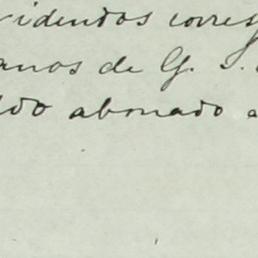 videndos corres
anos de G. S.
ldo abonado a